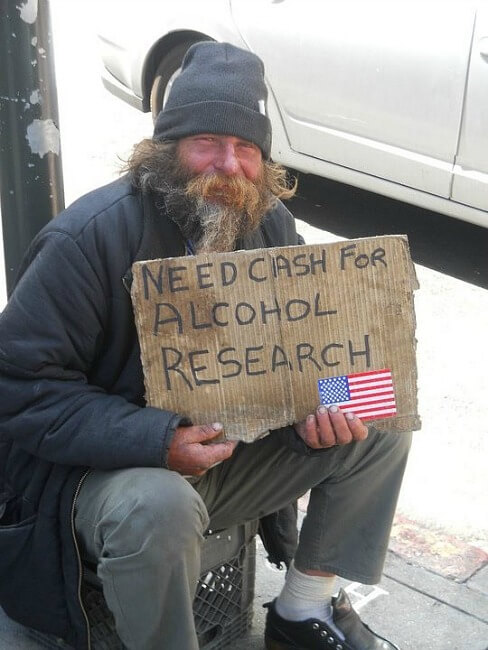 NEED CASH FOR
ALCOHOL
RESEARCH